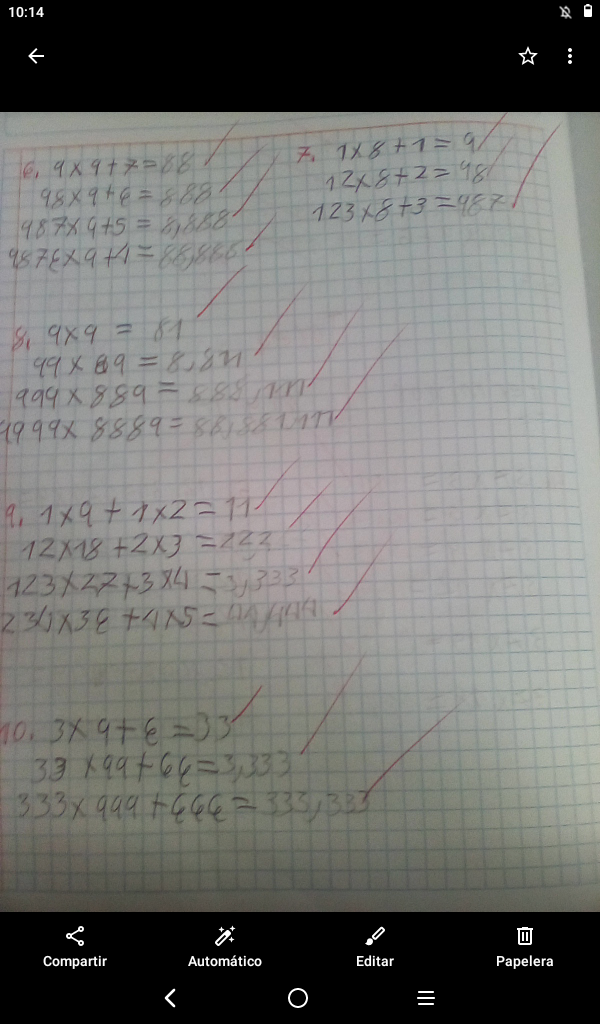 10:14
6. 9x9+7=88
98x9+6=888
987x9+5=8,888
9876x9+4=88,888
7. 1x8+1=9
12x8+2=98
123x8+3=987
8. 9x9 = 81
99x89=8,811
999x889=888,111
9999x8889=88,881,111
9. 1x9+1x2=11
12x18+2x3=222
123x27+3x4=3,333
234x36+4x5=44,444
10. 3x9+6=33
33x99+66=3,333
333x999+666=333,333
Compartir
Automático
Editar
Papelera